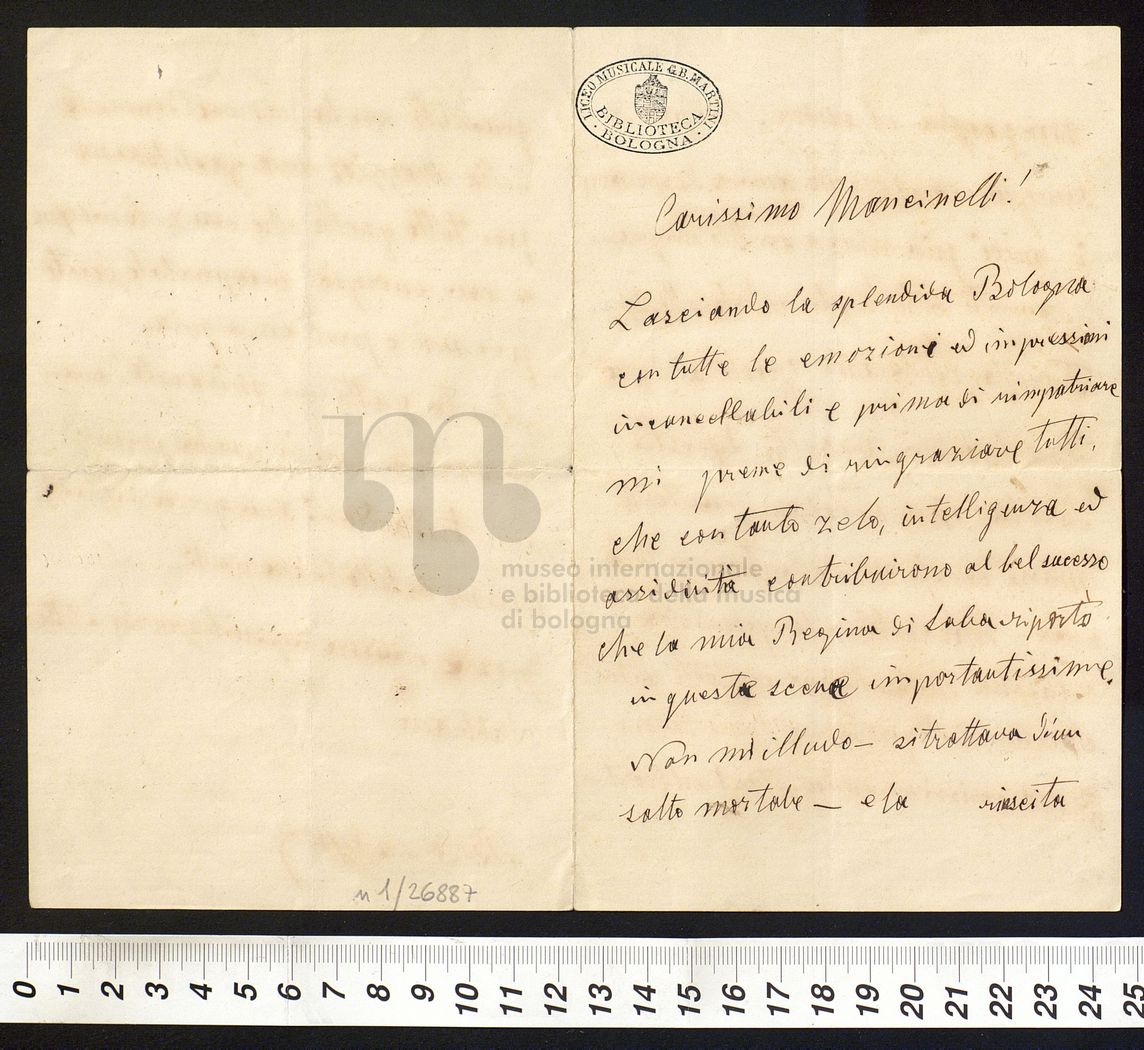 LICEO MUSICALE G.B. MARTINI
BIBLIOTECA
BOLOGNA
Carissimo Mancinelli!
Lasciando la splendida Bologna
con tutte le emozioni ed impressioni
incancellabili e prima di rimpatriare
mi preme di ringraziare tutti,
che con tanto zelo, intelligenza ed
assiduità contribuirono al bel successo
che la mia Regina di Saba riportò
in queste scene importantissime.
Non mi illudo — si trattava d'un
salto mortale — e la riescita
n 1/26887
museo internazionale
e biblioteca della musica
di bologna
0 1 2 3 4 5 6 7 8 9 10 11 12 13 14 15 16 17 18 19 20 21 22 23 24 25